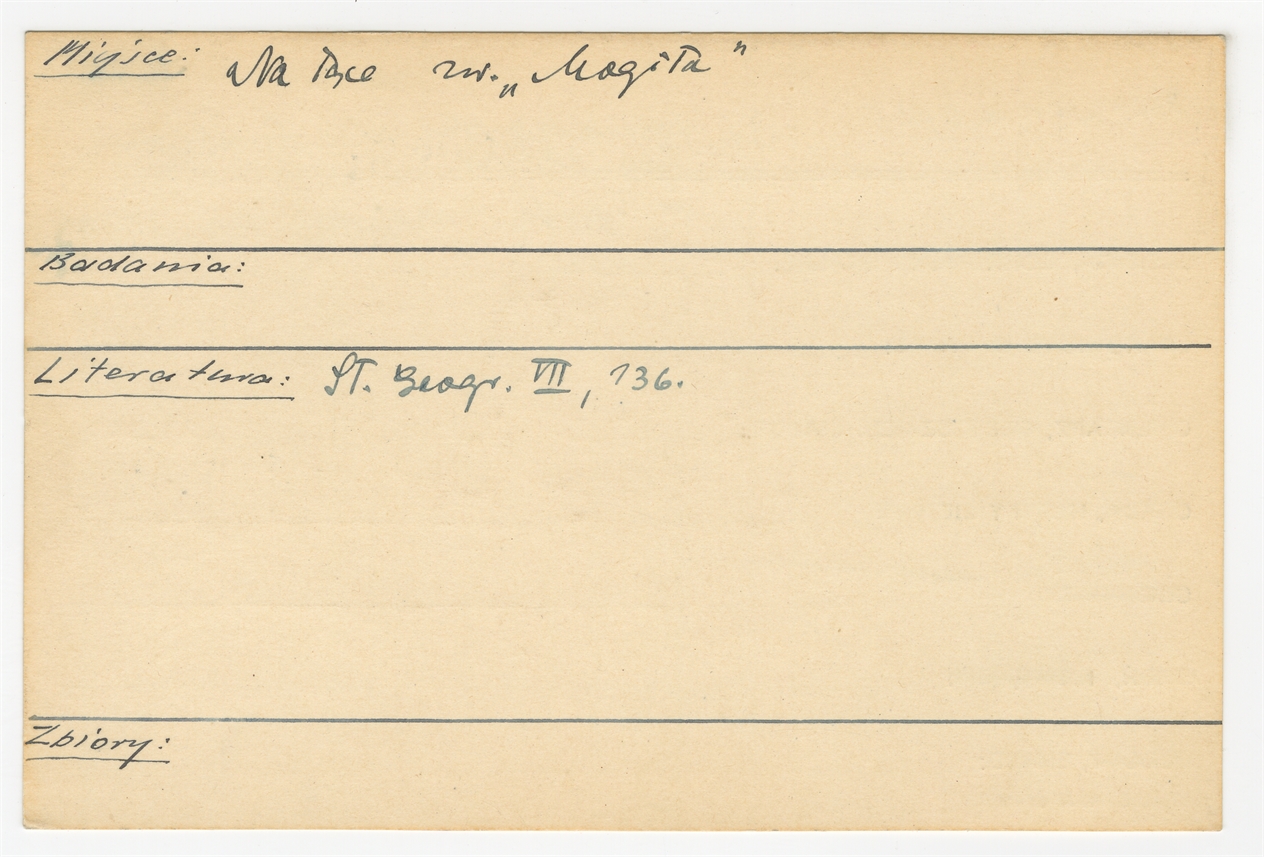 Miejsce: Na łące zw. „Mogiła"
Badania:
Literatura: Sł. Geogr. VII, 136.
Zbiory: